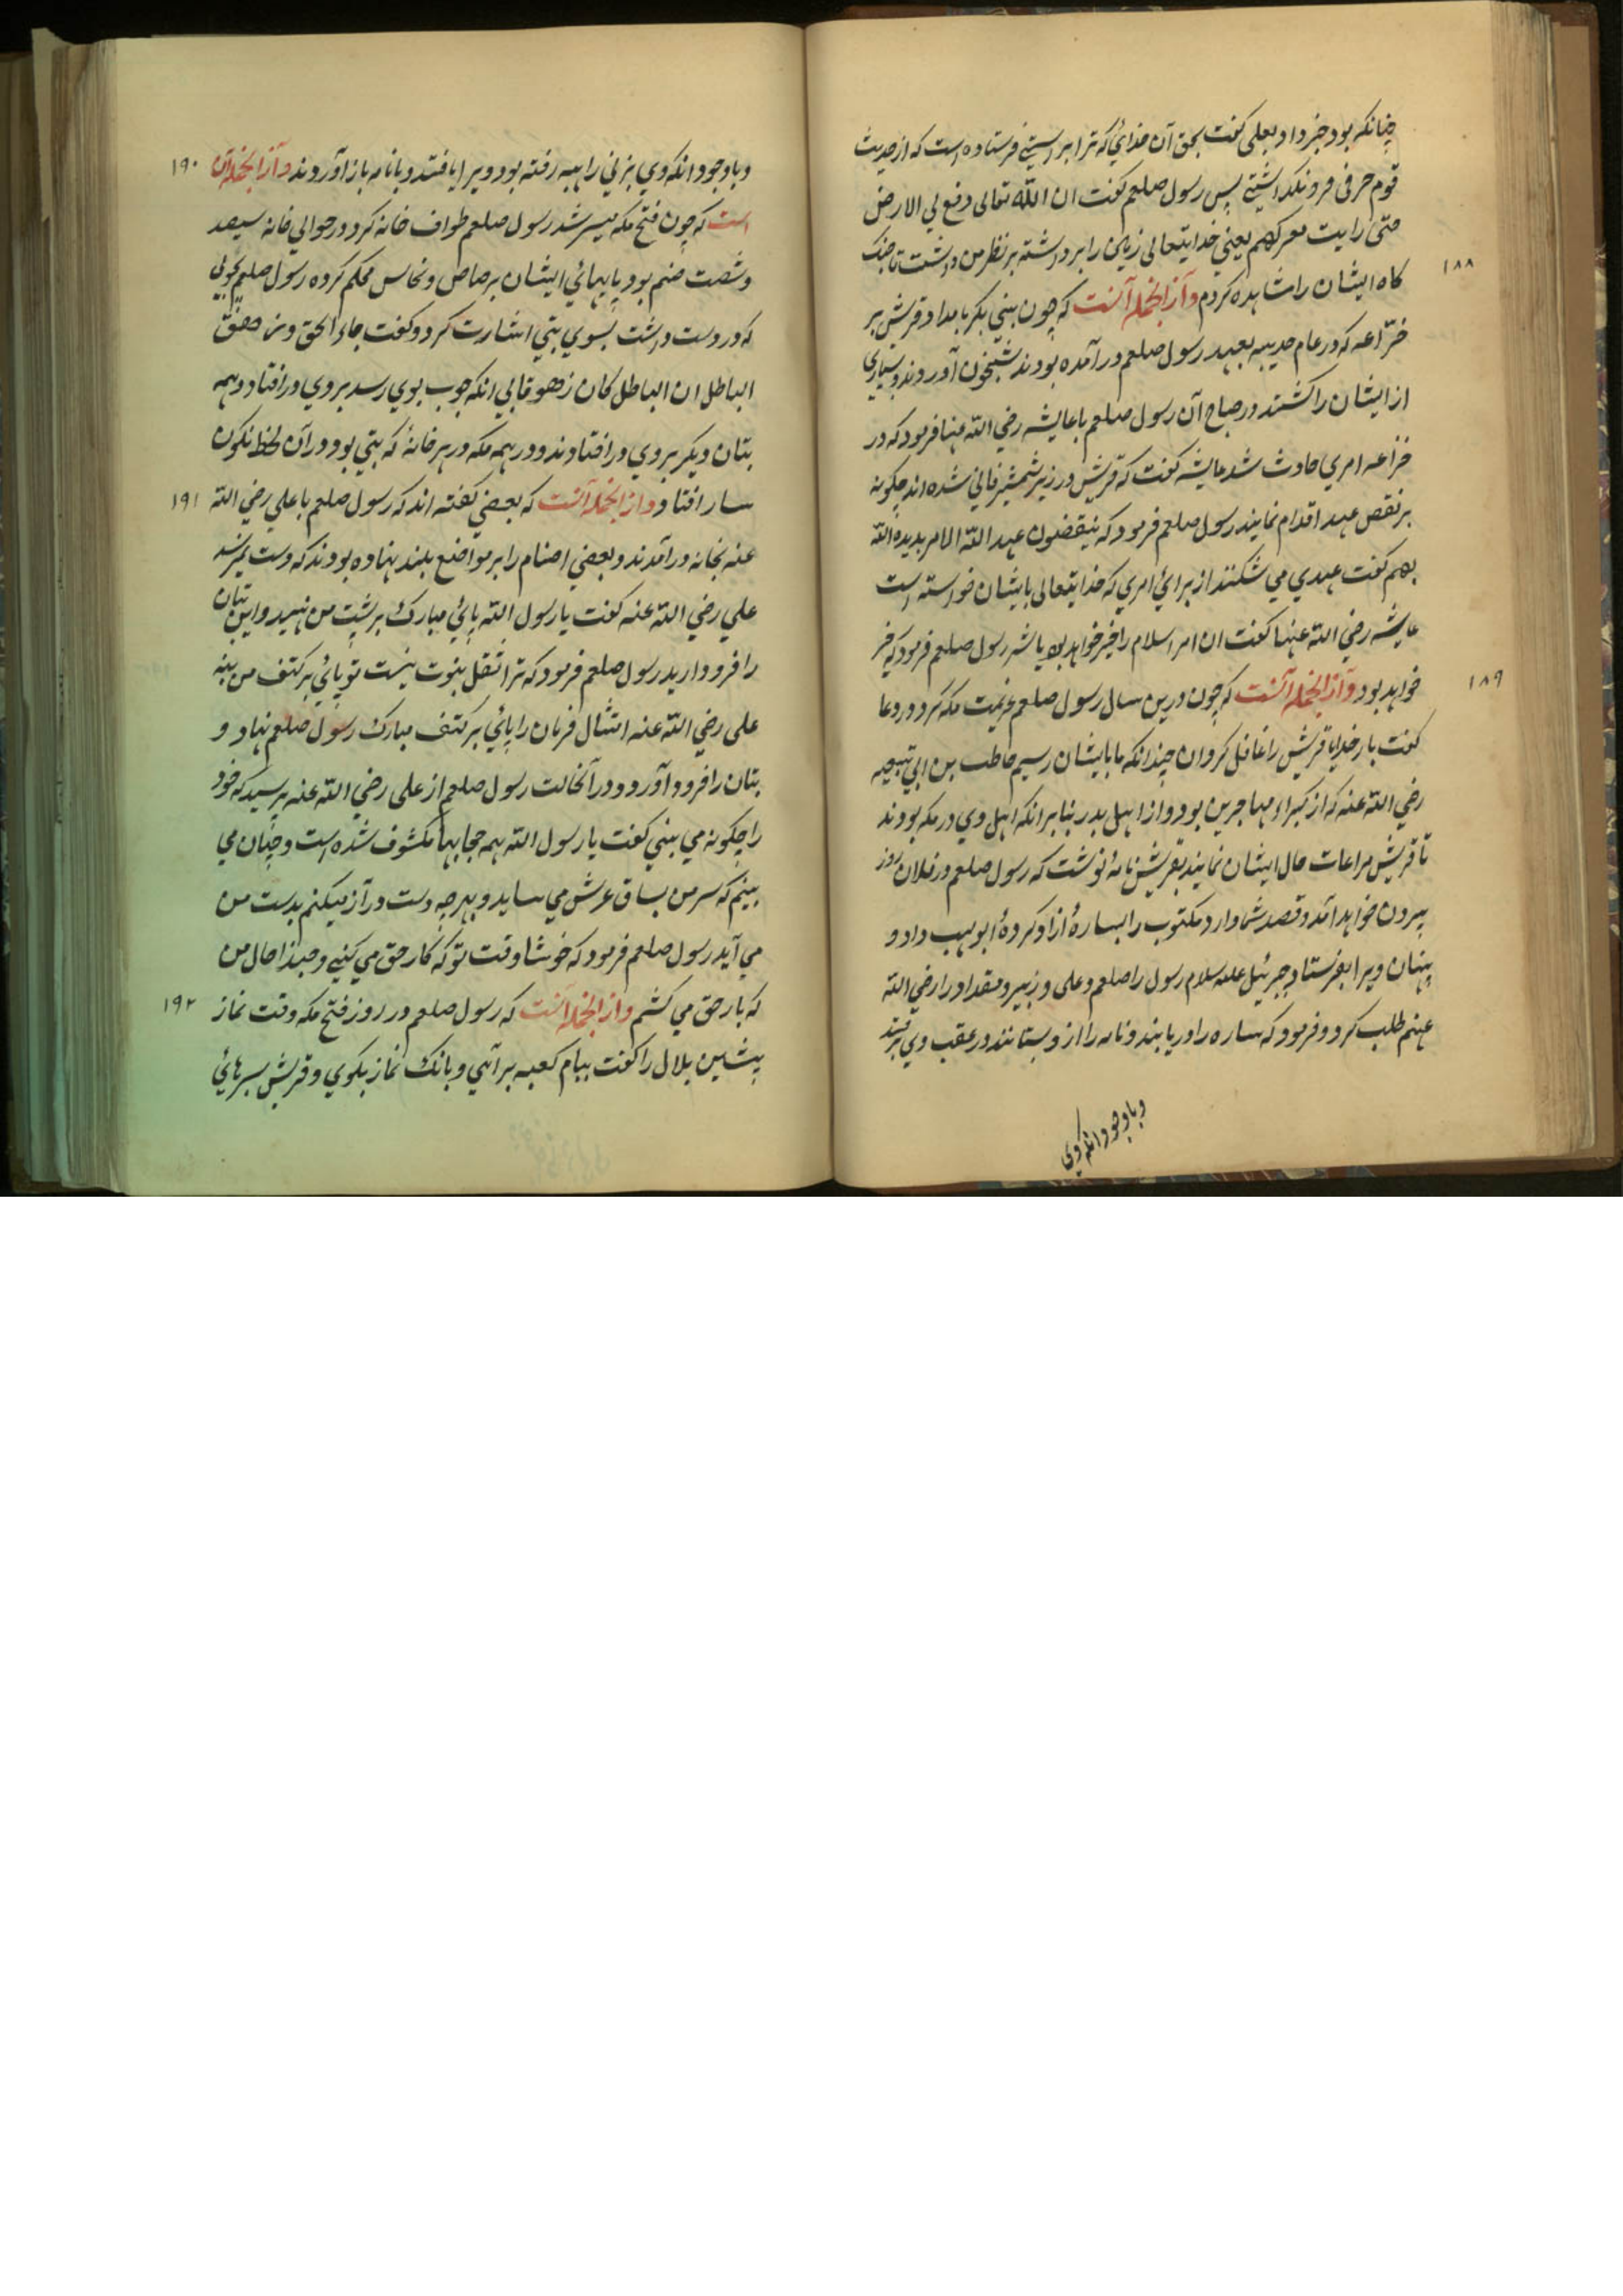 چنانکه بود خبر داد یعلی گفت بحق آن خدائی که ترا براستی فرستاده است که از حدیث
قوم حرفی فرو نگذاشتی پس رسول صلعم گفت ان الله تعالی رفع لی الارض
حتی رایت معرکهم یعنی خدایتعالی زمین را برداشته بر نظر من داشت تا جنک
۱۸۸
کاه ایشان را مشاهده کردم و از انجمله آنست که چون بنی بکر با مداد قریش بر
خزاعه که در عام حدیبیه بعهد رسول صلعم در آمده بودند شبیخون آوردند و بسیاری
از ایشان را کشتند در صباح آن رسول صلعم با عایشه رضی الله عنها فرمود که در
خزاعه امری حادث شد عایشه گفت که قریش در زیر شمشیر فانی شده اند چگونه
بر نقص عهد اقدام نمایند رسول صلعم فرمود که ینقضون عهد الله الامر یریده الله
بهم گفت عهدی می شکنند از برائی امری که خدایتعالی بایشان خواسته است
عایشه رضی الله عنها گفت ان امر اسلام را خیر خواهد بود یا شر رسول صلعم فرمود که خیر
۱۸۹
خواهد بود و از انجمله آنست که چون درین سال رسول صلعم عزیمت مکه کرد در دعا
گفت بار خدایا قریش را غافل کردان چندانکه ما بایشان رسیم حاطب بن ابی بلتعه
رضی الله عنه که از کبراء مهاجرین بود و از اهل بدر بنا بر انکه اهل وی در مکه بودند
تا قریش مراعات حال ایشان نمایند بقریش نامهٔ نوشت که رسول صلعم در فلان روز
بیرون خواهد آمد و قصد شما دارد مکتوب را بسارهٔ آزاد کردهٔ ابو لهب داد و
پنهان ویرا بفرستاد جبرئیل علیه سلام رسول را صلعم و علی و زبیر و مقداد را رضی الله
عنهم طلب کرد و فرمود که ساره را دریابند و نامه را از و بستانند در عقب وی برفتند
و باوجود انکه وی
۱۹۰
و باوجود انکه وی بزنی راهبه رفته بود ویرا یافتند و با نامه باز آوردند و از انجمله آن
است که چون فتح مکه میسر شد رسول صلعم طواف خانه کرد در حوالی خانه سیصد
و شصت صنم بود پایهائی ایشان برصاص و نحاس محکم کرده رسول صلعم بچوبی
که در دست داشت بسوی بتی اشارت کرد و گفت جاء الحق و زهق
الباطل ان الباطل کان زهوقا بی انکه چوب بوی رسد بروی در افتاد و همه
بتان دیگر بروی در افتادند و در همه مکه در هر خانهٔ که بتی بود در آن لحظه نکون
۱۹۱
سار افتاد و از انجمله آنست که بعضی گفته اند که رسول صلعم با علی رضی الله
عنه بخانه در آمدند و بعضی اصنام را بر مواضع بلند نهاده بودند که دست نمیرسد
علی رضی الله عنه گفت یا رسول الله پائی مبارک بر پشت من نهید و این بتان
را فرو دارید رسول صلعم فرمود که ترا ثقل نبوت نیست تو پائی بر کتف من بنه
علی رضی الله عنه امتثال فرمان را پائی بر کتف مبارک رسول صلعم نهاد و
بتان را فرود آورد و در آنحالت رسول صلعم از علی رضی الله عنه پرسید که خود
را چگونه می بینی گفت یا رسول الله همه حجابها مکشوف شده است و چنان می
بینم که سر من بساق عرش می ساید و بهر چه دست دراز میکنم بدست من
می آید رسول صلعم فرمود که خوشا وقت تو که کار حق می کنی و حبذا حال من
۱۹۲
که بار حق می کشم و از انجمله آنست که رسول صلعم در روز فتح مکه وقت نماز
پیشین بلال را گفت ببام کعبه بر آئی و بانک نماز بکوی و قریش بسرهائی